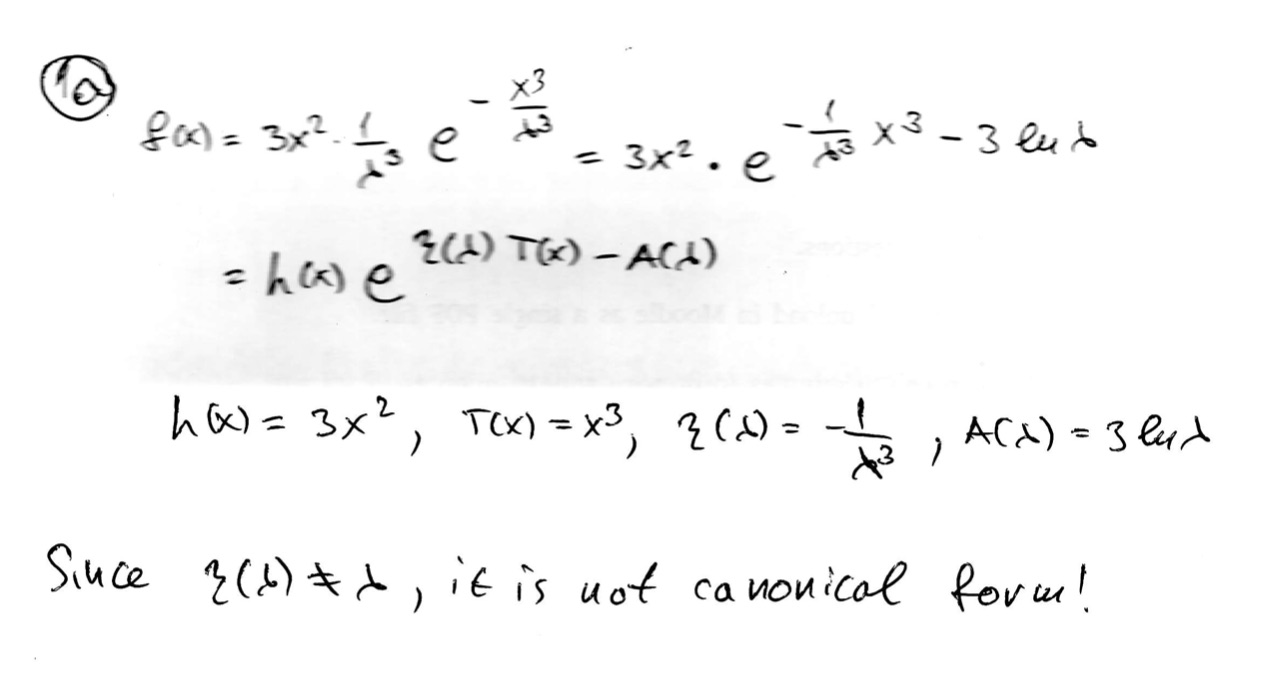 1a
f(x) = 3x² · 1/λ³ e^(-x³/λ³) = 3x² · e^(-1/λ³ x³ - 3 ln λ)
= h(x) e^(ξ(λ) T(x) - A(λ))
h(x) = 3x², T(x) = x³, ξ(λ) = -1/λ³, A(λ) = 3 ln λ
Since ξ(λ) ≠ λ, it is not canonical form!